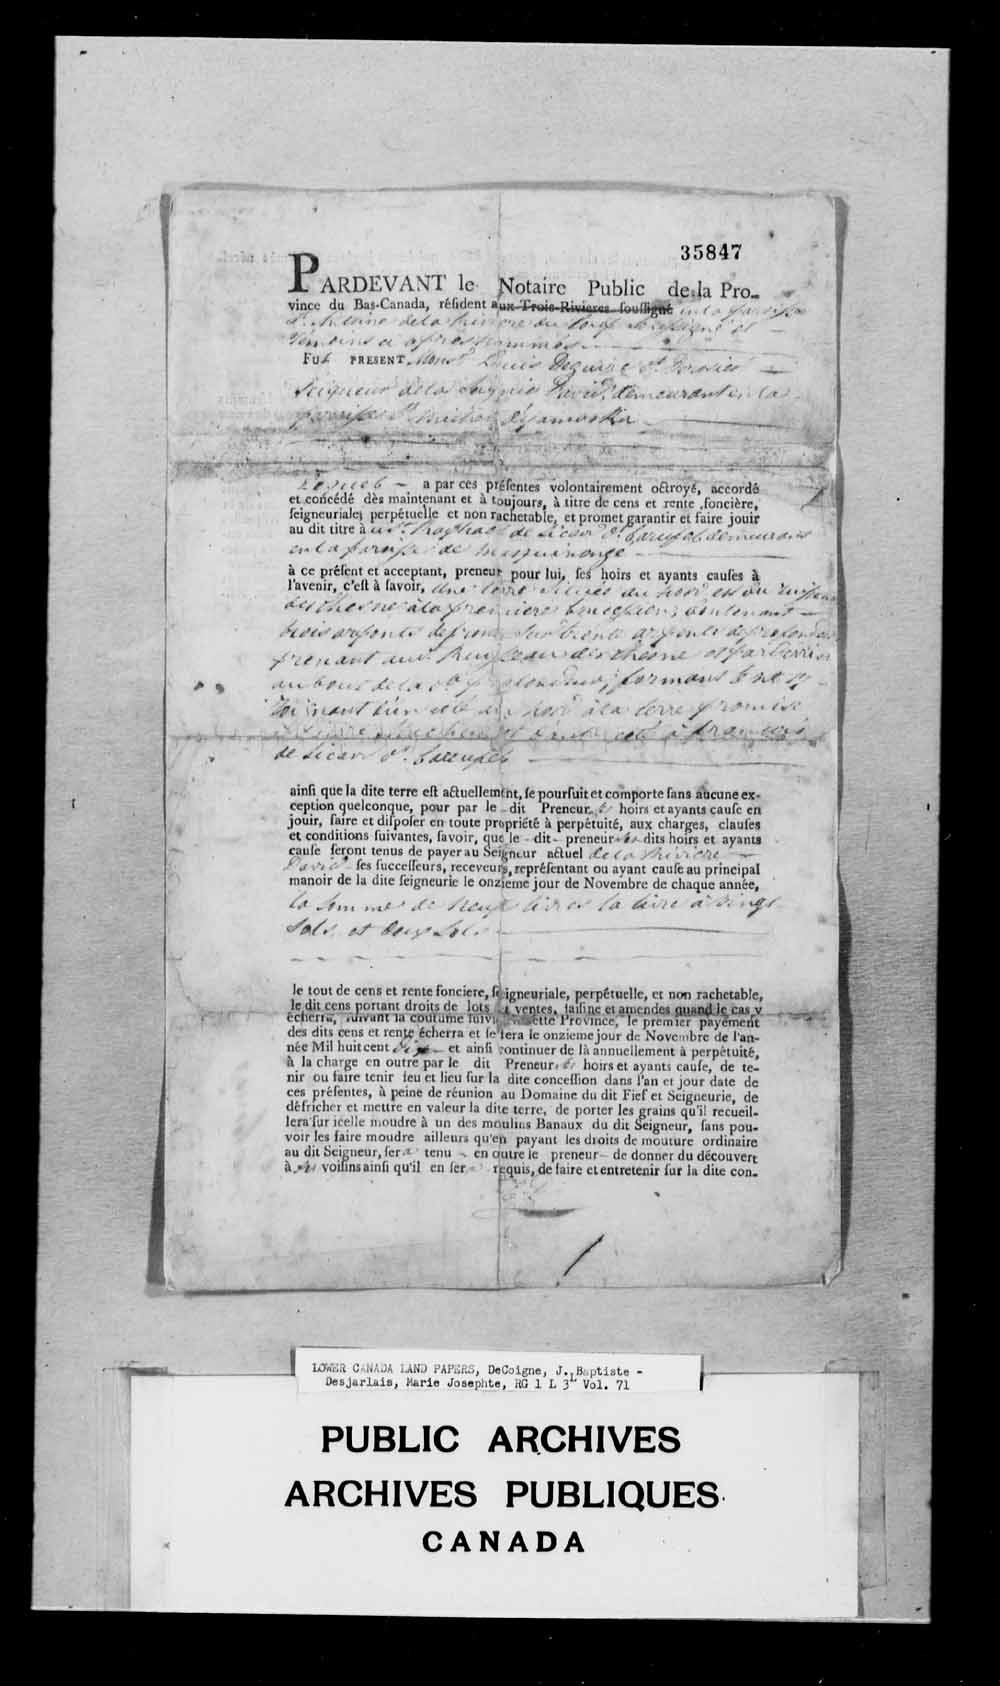 35847
PARDEVANT le Notaire Public de la Pro-
vince du Bas-Canada, réſident aux Trois-Rivieres ſouſſigné en la paroiſſe
St. Antoine de la Riviere du Loup Souſsigné et
témoins ci après nommés
FUT PRESENT Monsr. Louis Deguire St. Derosier
Seigneur de la Seignie David, demeurant en la
paroiſse St. Michel d'Yamaska
Lequel a par ces préſentes volontairement octroyé, accordé
et concédé dès maintenant et à toujours, à titre de cens et rente foncière,
ſeigneuriale, perpétuelle et non rachetable, et promet garantir et faire jouir
au dit titre à de Sicard Dt. Carufel demeurant
en la paroiſse de Masquinongé
à ce préſent et acceptant, preneur pour lui, ſes hoirs et ayants cauſes à
l'avenir, c'eſt à ſavoir, Une terre située au nord est du ruiſseau
des chesne à la premiere contenant
trois arpents de front Sur trente arpents de profondeur
prenant au Ruiſseau des chesne et par derrier
au bout de la de. profondeur; formant
Joignant d'un côté au nord à la terre promise
et d'autre côté à francois
de Sicard Dt. Carufel
ainſi que la dite terre eſt actuellement, ſe pourſuit et comporte ſans aucune ex-
ception quelconque, pour par le dit Preneur ses hoirs et ayants cauſe en
jouir, faire et diſpoſer en toute propriété à perpétuité, aux charges, clauſes
et conditions ſuivantes, ſavoir, que le dit preneur ses dits hoirs et ayants
cauſe ſeront tenus de payer au Seigneur actuel de la Riviere
David ſes ſucceſſeurs, receveurs, repréſentant ou ayant cauſe au principal
manoir de la dite ſeigneurie le onzieme jour de Novembre de chaque année,
la Somme de neuf livres la livre à vingt
Sols, et deux Sols
le tout de cens et rente fonciere, ſeigneuriale, perpétuelle, et non rachetable,
le dit cens portant droits de lots et ventes, ſaiſine et amendes quand le cas y
écherra, ſuivant la coutume ſuivie en cette Province, le premier payement
des dits cens et rente écherra et ſe fera le onzieme jour de Novembre de l'an-
née Mil huit cent dix et ainſi continuer de là annuellement à perpétuité,
à la charge en outre par le dit Preneur ses hoirs et ayants cauſe, de te-
nir ou faire tenir feu et lieu ſur la dite conceſſion dans l'an et jour date de
ces préſentes, à peine de réunion au Domaine du dit Fief et Seigneurie, de
défricher et mettre en valeur la dite terre, de porter les grains qu'il recueil-
lera ſur icelle moudre à un des moulins Banaux du dit Seigneur, ſans pou-
voir les faire moudre ailleurs qu'en payant les droits de mouture ordinaire
au dit Seigneur, ſera tenu en outre le preneur de donner du découvert
à ses voiſins ainſi qu'il en ſera requis, de faire et entretenir ſur la dite con-
LOWER CANADA LAND PAPERS, DeCoigne, J. Baptiste -
Desjarlais, Marie Josephte, RG 1 L 3L Vol. 71
PUBLIC ARCHIVES
ARCHIVES PUBLIQUES
CANADA